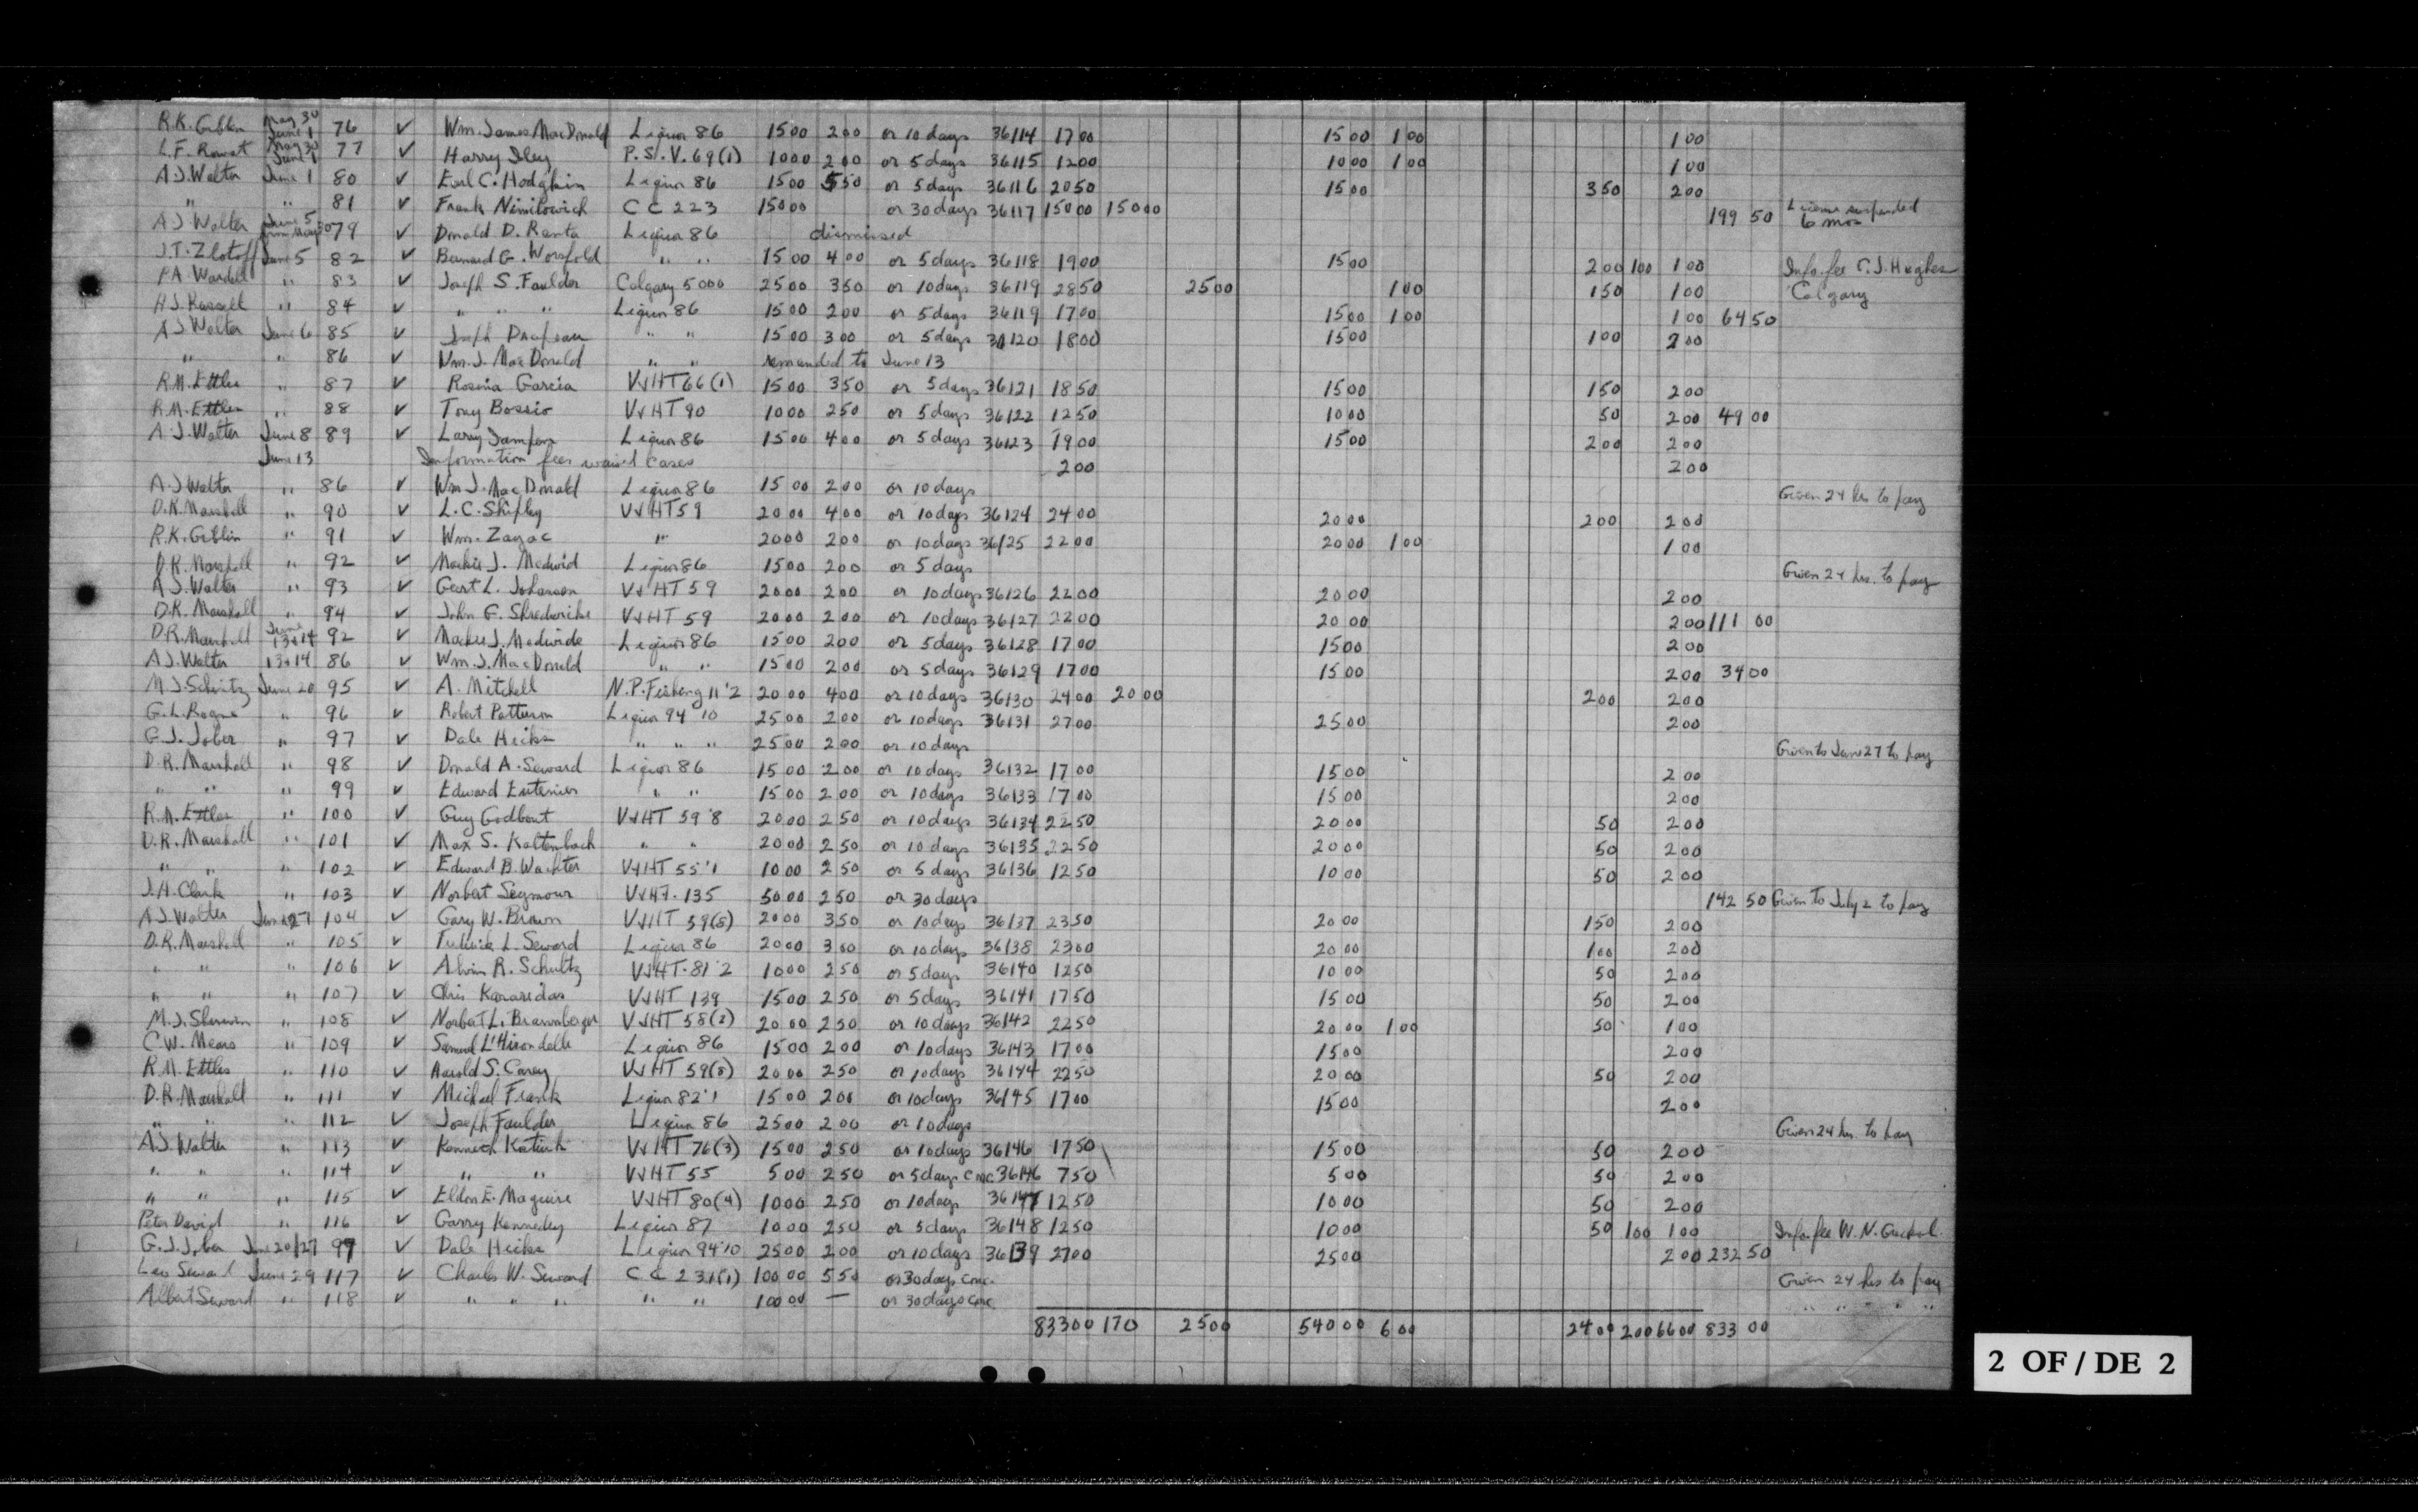 R.K. Giblin May 30 June 1 76 ✓ Wm. James MacDonald Liquor 86 15 00 2 00 or 10 days 36114 17 00 15 00 1 00 1 00
L.F. Rowat May 30 June 1 77 ✓ Harry Iley P.S.V. 69(1) 10 00 2 00 or 5 days 36115 12 00 10 00 1 00 1 00
A.J. Walter June 1 80 ✓ Earl C. Hodgkin Liquor 86 15 00 5 50 or 5 days 36116 20 50 15 00 3 50 2 00
" " 81 ✓ Frank CC 223 150 00 or 30 days 36117 150 00 150 00 199 50 License suspended 6 mos
A.J. Walter June 5 79 ✓ Donald D. Ranta Liquor 86 dismissed
J.T. Zlotoff June 5 82 ✓ Bernard G. Worsfold " " 15 00 4 00 or 5 days 36118 19 00 15 00 2 00 1 00 1 00 Info. fee C.J. Hughes
Wardell " 83 ✓ Joseph S. Faulder Calgary 5000 25 00 3 50 or 10 days 36119 28 50 25 00 1 00 1 50 1 00 Calgary
H.J. Russell " 84 ✓ " " " Liquor 86 15 00 2 00 or 5 days 36119 17 00 15 00 1 00 1 00 64 50
A.J. Walter June 6 85 ✓ Joseph " " 15 00 3 00 or 5 days 36120 18 00 15 00 1 00 2 00
" " 86 ✓ Wm. J. MacDonald " " remanded to June 13
R.M. Ettles " 87 ✓ Rosina Garcia V&HT 66(1) 15 00 3 50 or 5 days 36121 18 50 15 00 1 50 2 00
R.M. Ettles " 88 ✓ Tony Bossio V&HT 90 10 00 2 50 or 5 days 36122 12 50 10 00 50 2 00 49 00
A.J. Walter June 8 89 ✓ Larry Liquor 86 15 00 4 00 or 5 days 36123 19 00 15 00 2 00 2 00
June 13 Information fees waived cases 2 00 2 00
A.J. Walter " 86 ✓ Wm J. MacDonald Liquor 86 15 00 2 00 or 10 days Given 24 hrs to pay
D.R. Marshall " 90 ✓ L.C. Shipley V&HT 59 20 00 4 00 or 10 days 36124 24 00 20 00 2 00 2 00
R.K. Giblin " 91 ✓ Wm. Zayac " 20 00 2 00 or 10 days 36125 22 00 20 00 1 00 1 00
D.R. Marshall " 92 ✓ J. Medwid Liquor 86 15 00 2 00 or 5 days Given 24 hrs. to pay
A.J. Walter " 93 ✓ Geert L. Johanson V&HT 59 20 00 2 00 or 10 days 36126 22 00 20 00 2 00
D.R. Marshall " 94 ✓ John G. V&HT 59 20 00 2 00 or 10 days 36127 22 00 20 00 2 00 111 00
D.R. Marshall June 13+14 92 ✓ J. Medwide Liquor 86 15 00 2 00 or 5 days 36128 17 00 15 00 2 00
A.J. Walter 13+14 86 ✓ Wm. J. MacDonald " " 15 00 2 00 or 5 days 36129 17 00 15 00 2 00 34 00
M.J. June 20 95 ✓ A. Mitchell N.P. Fishing 11'2 20 00 4 00 or 10 days 36130 24 00 20 00 2 00 2 00
G.L. " 96 ✓ Robert Patterson Liquor 94'10 25 00 2 00 or 10 days 36131 27 00 25 00 2 00
G.J. Jober " 97 ✓ Dale Hicks " " " 25 00 2 00 or 10 days Given to June 27 to pay
D.R. Marshall " 98 ✓ Donald A. Seward Liquor 86 15 00 2 00 or 10 days 36132 17 00 15 00 2 00
" " " 99 ✓ Edward " " 15 00 2 00 or 10 days 36133 17 00 15 00 2 00
R.M. Ettles " 100 ✓ Guy Godbout V&HT 59'8 20 00 2 50 or 10 days 36134 22 50 20 00 50 2 00
D.R. Marshall " 101 ✓ Max S. Kaltenbach " " 20 00 2 50 or 10 days 36135 22 50 20 00 50 2 00
" " " 102 ✓ Edward B. Wachter V&HT 55'1 10 00 2 50 or 5 days 36136 12 50 10 00 50 2 00
J.H. Clark " 103 ✓ Norbert Seymour V&HT. 135 50 00 2 50 or 30 days 142 50 Given to July 2 to pay
A.J. Walter June 27 104 ✓ Gary W. Brown V&HT 59(8) 20 00 3 50 or 10 days 36137 23 50 20 00 1 50 2 00
D.R. Marshall " 105 ✓ L. Seward Liquor 86 20 00 3 00 or 10 days 36138 23 00 20 00 1 00 2 00
" " " 106 ✓ Alvin R. Schultz V&HT. 81'2 10 00 2 50 or 5 days 36140 12 50 10 00 50 2 00
" " " 107 ✓ Chris Kararidas V&HT 139 15 00 2 50 or 5 days 36141 17 50 15 00 50 2 00
M.J. Sherwin " 108 ✓ Norbert L. Braunberger V&HT 58(2) 20 00 2 50 or 10 days 36142 22 50 20 00 1 00 50 1 00
C.W. Mears " 109 ✓ Samuel L'Hirondelle Liquor 86 15 00 2 00 or 10 days 36143 17 00 15 00 2 00
R.M. Ettles " 110 ✓ Harold S. Carey V&HT 59(8) 20 00 2 50 or 10 days 36144 22 50 20 00 50 2 00
D.R. Marshall " 111 ✓ Michael Frank Liquor 82'1 15 00 2 00 or 10 days 36145 17 00 15 00 2 00
" " " 112 ✓ Joseph Faulder Liquor 86 25 00 2 00 or 10 days Given 24 hrs. to pay
A.J. Walter " 113 ✓ Kenneth V&HT 76(3) 15 00 2 50 or 10 days 36146 17 50 15 00 50 2 00
" " " 114 ✓ " " V&HT 55 5 00 2 50 or 5 days conc. 36146 7 50 5 00 50 2 00
" " " 115 ✓ Eldon E. Maguire V&HT 80(4) 10 00 2 50 or 10 days 36147 12 50 10 00 50 2 00
Peter David " 116 ✓ Garry Kennedy Liquor 87 10 00 2 50 or 5 days 36148 12 50 10 00 50 1 00 1 00 Info. fee W.N.
G.J. Jober June 20/27 97 ✓ Dale Hicks Liquor 94'10 25 00 2 00 or 10 days 36139 27 00 25 00 2 00 232 50
Leo Seward June 29 117 ✓ Charles W. Seward CC 231(1) 100 00 5 50 or 30 days conc. Given 24 hrs to pay
Albert Seward " 118 ✓ " " " " " 100 00 — or 30 days conc. " " " " "
833 00 170 25 00 540 00 6 00 24 00 2 00 66 00 833 00
2 OF / DE 2